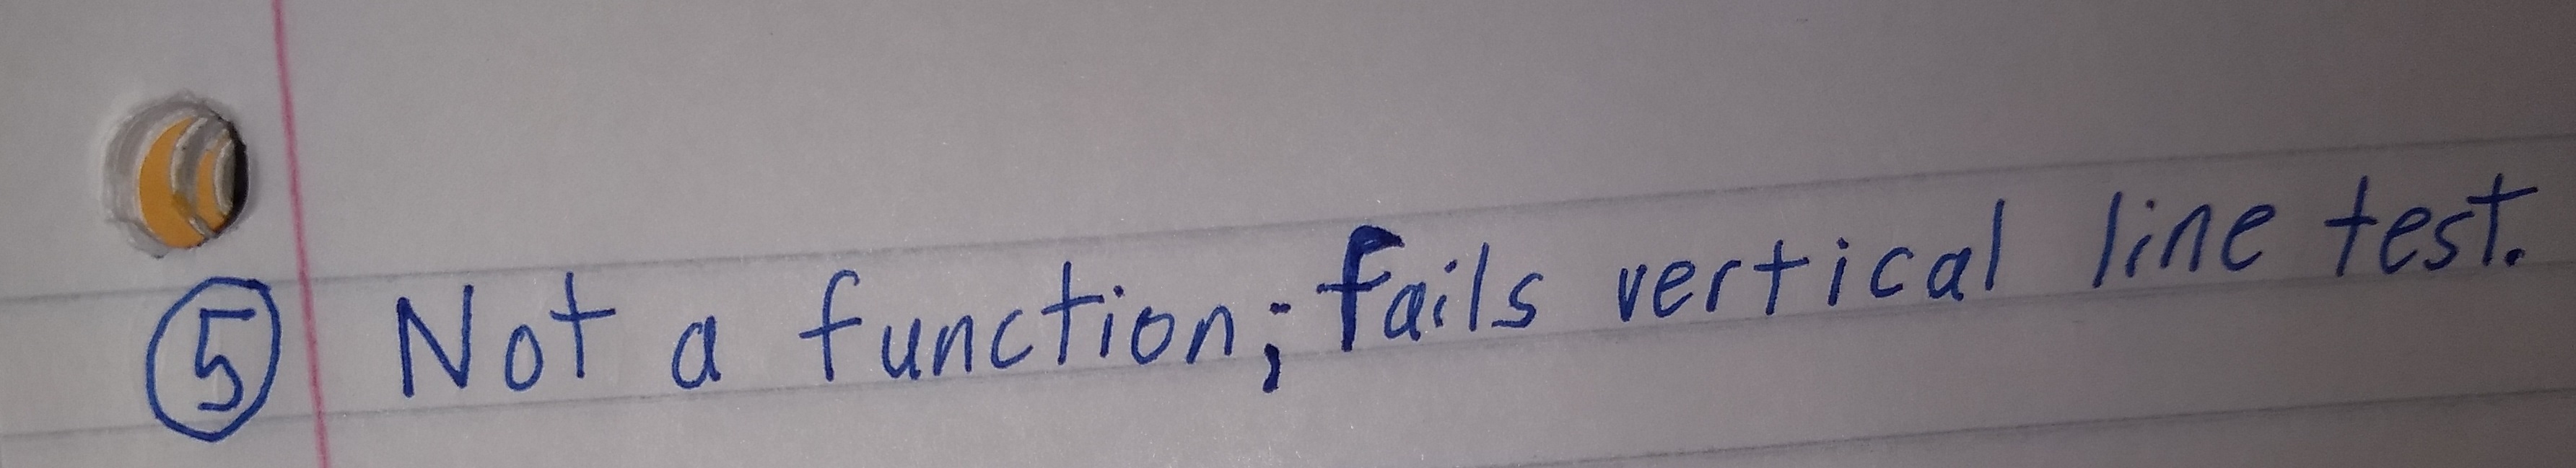 ⑤ Not a function; fails vertical line test.